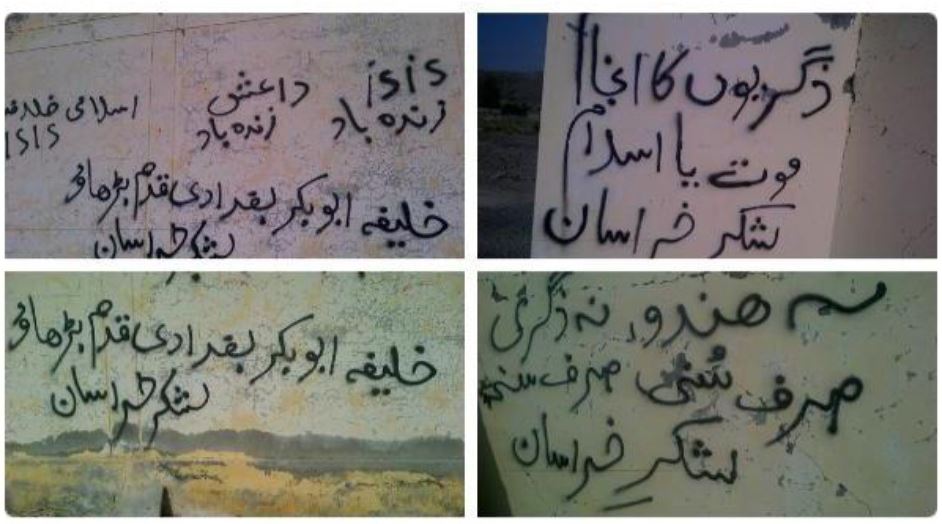 isis
زنده باد
داعش
زنده باد
اسلامی
ISIS
خلیفه ابوبکر بغدادی قدم بڑھاؤ
لشکر خراسان
ذگریوں کا انجام
موت یا اسلام
لشکر خراسان
خلیفه ابوبکر بغدادی قدم بڑھاؤ
لشکر خراسان
نہ ھندو، نہ ذگری
صرف سُنی صرف سنی
لشکرِ خراسان